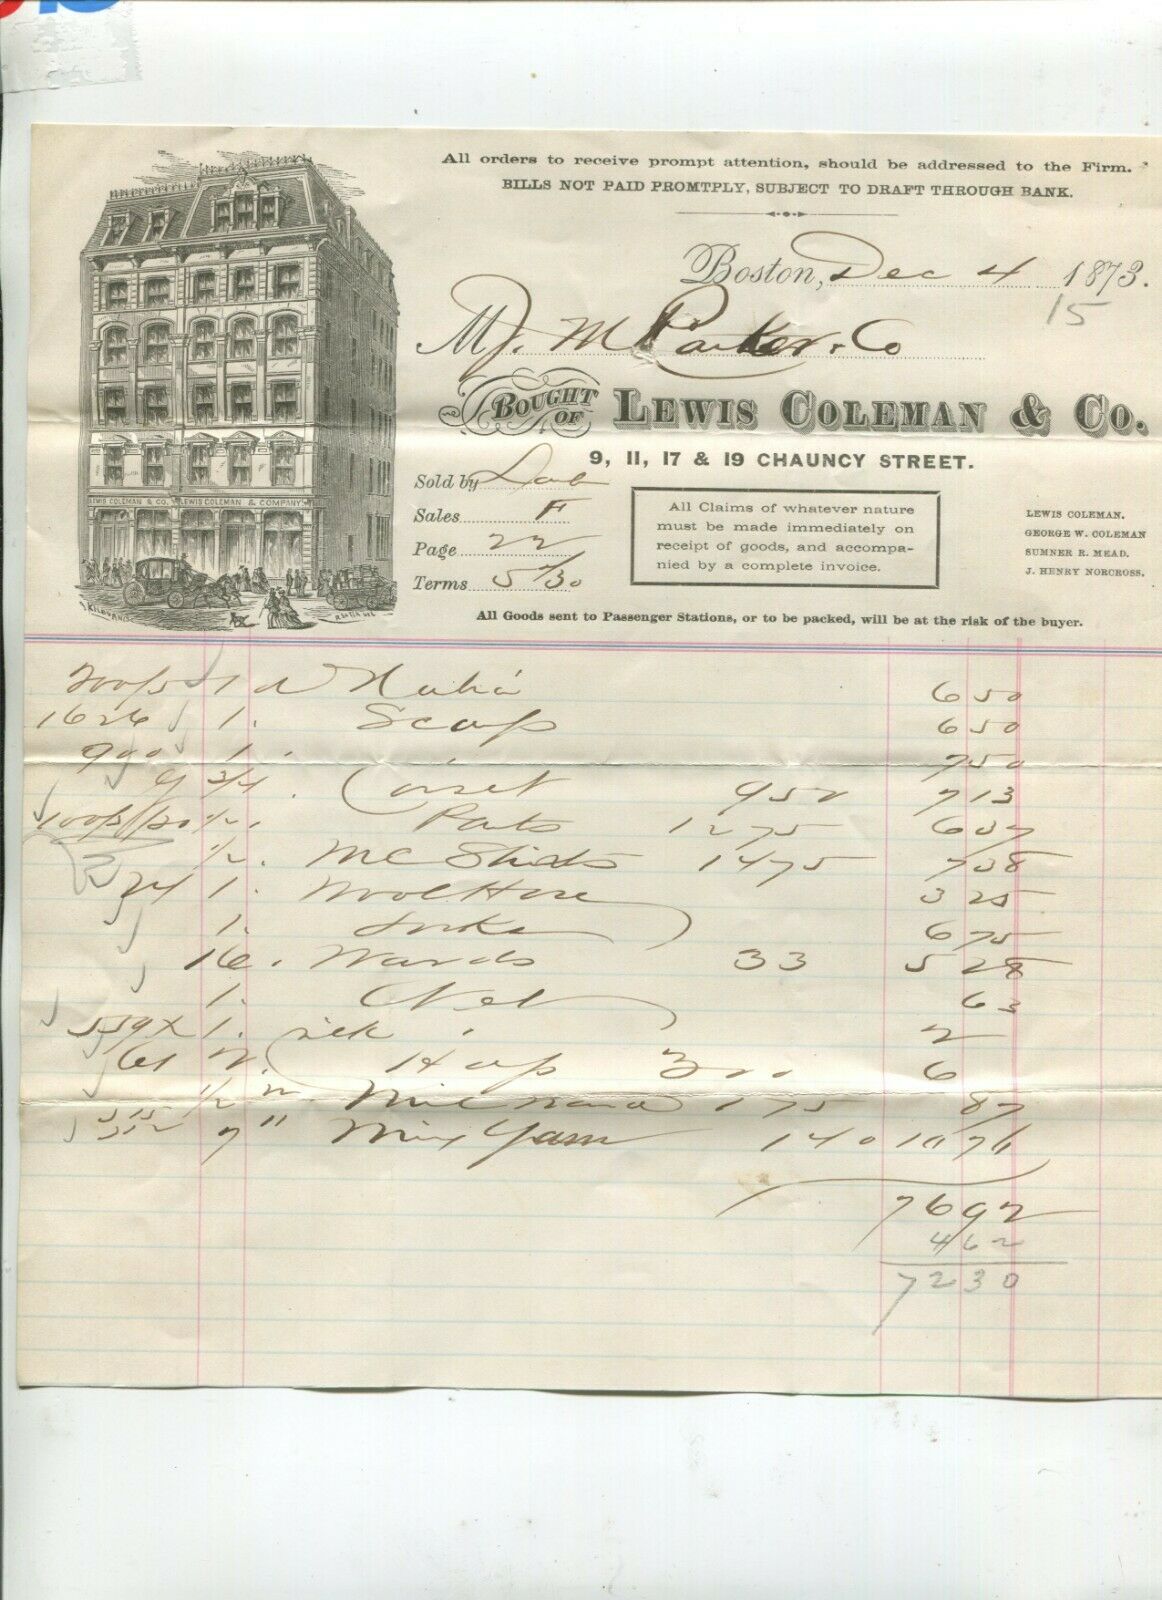 All orders to receive prompt attention, should be addressed to the Firm.
BILLS NOT PAID PROMTPLY, SUBJECT TO DRAFT THROUGH BANK.
Boston, Dec 4 1873.
15
M Parker & Co
BOUGHT OF LEWIS COLEMAN & CO.
9, 11, 17 & 19 CHAUNCY STREET.
Sold by
Sales F
Page 22
Terms 5/30
All Claims of whatever nature
must be made immediately on
receipt of goods, and accompa-
nied by a complete invoice.
LEWIS COLEMAN.
GEORGE W. COLEMAN
SUMNER R. MEAD.
J. HENRY NORCROSS.
LEWIS COLEMAN & CO. LEWIS COLEMAN & COMPANY
KILBURN
All Goods sent to Passenger Stations, or to be packed, will be at the risk of the buyer.
1 Nubia 6 50
1626 1 Scarf 6 50
900 1 7 50
3/4 Corset 9 50 7 13
1/2 Pants 12 75 6 37
1/2 Shirts 14 75 7 38
24 1 Wool Hose 3 25
1 6 75
16 33 5 28
1 Net 63
1 silk 2
61 2 3 00 6
1/2 175 87
7 " Mix Yarn 1 40
76 92
4 62
72 30